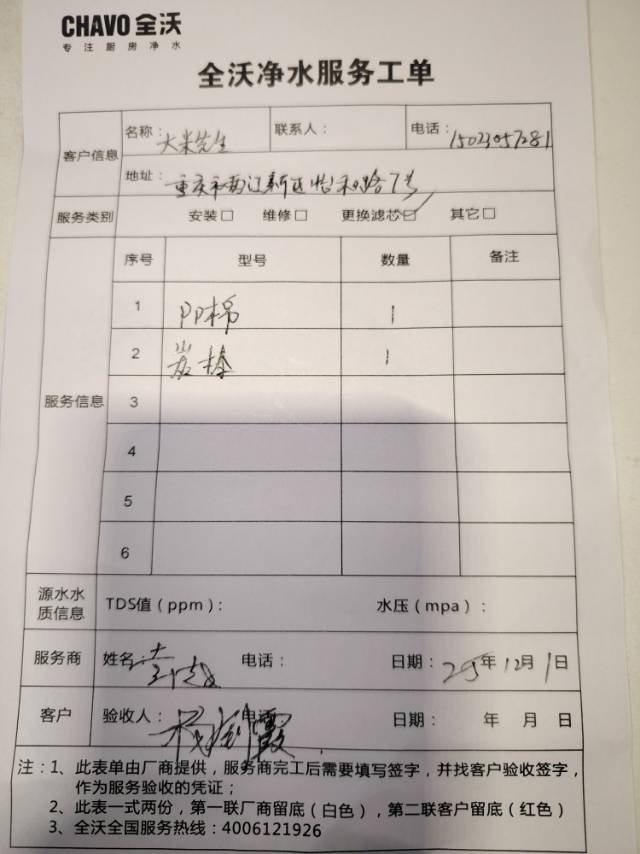 CHAVO 全沃
专注厨房净水
全沃净水服务工单
客户信息 名称：大米先生 联系人： 电话：15023057281
地址：重庆市两江新区怡和路7号
服务类别 安装□ 维修□ 更换滤芯☑ 其它□
服务信息 序号 型号 数量 备注
1 PP棉 1
2 炭棒 1
3
4
5
6
源水水质信息 TDS值（ppm）： 水压（mpa）：
服务商 姓名： 电话： 日期：25年12月1日
客户 验收人： 电话 日期： 年 月 日
注：1、此表单由厂商提供，服务商完工后需要填写签字，并找客户验收签字，
作为服务验收的凭证；
2、此表一式两份，第一联厂商留底（白色），第二联客户留底（红色）
3、全沃全国服务热线：4006121926